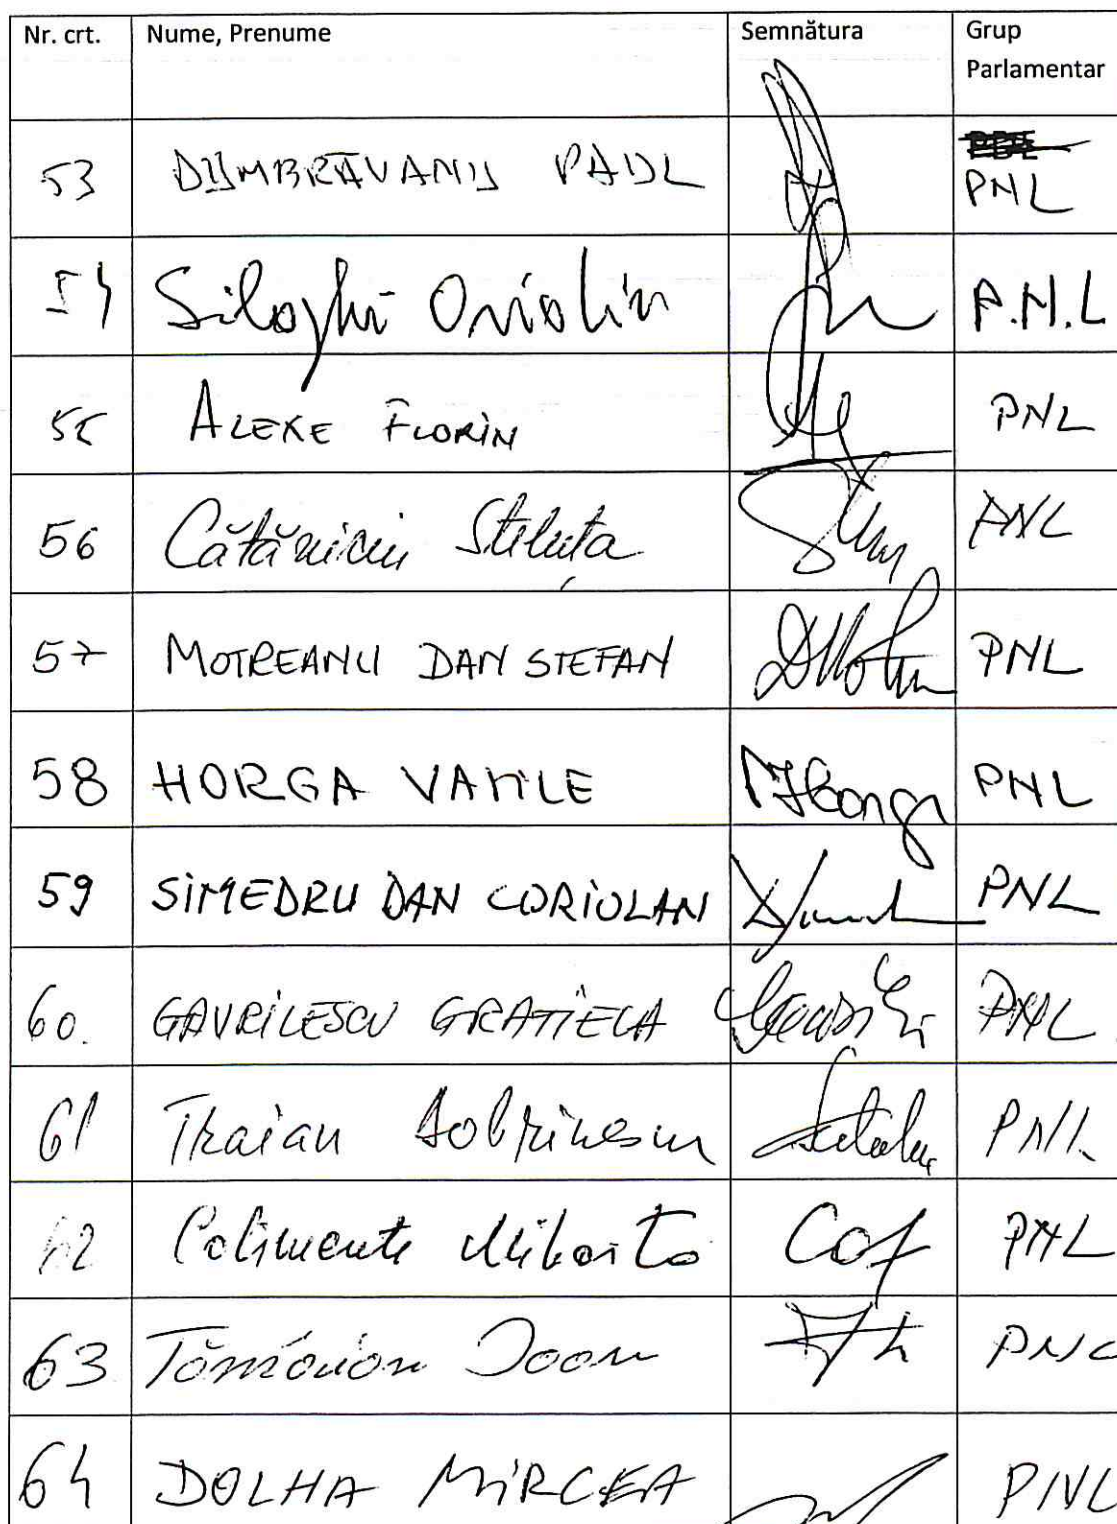 Nr. crt. Nume, Prenume Semnătura Grup Parlamentar
53 DUMBRĂVANU PAUL PNL
54 Siloghi Oviolin P.N.L
55 ALEKE FLORIN PNL
56 Cătăniciu Steluța PNL
57 MOTREANU DAN STEFAN PNL
58 HORGA VASILE PNL
59 SIMEDRU DAN CORIOLAN PNL
60. GAVRILESCU GRATIELA PNL
61 Traian Dobrinescu PNL
62 Calimente Mihăiță PNL
63 Tămâian Ioan PNL
64 DOLHA MIRCEA PNL